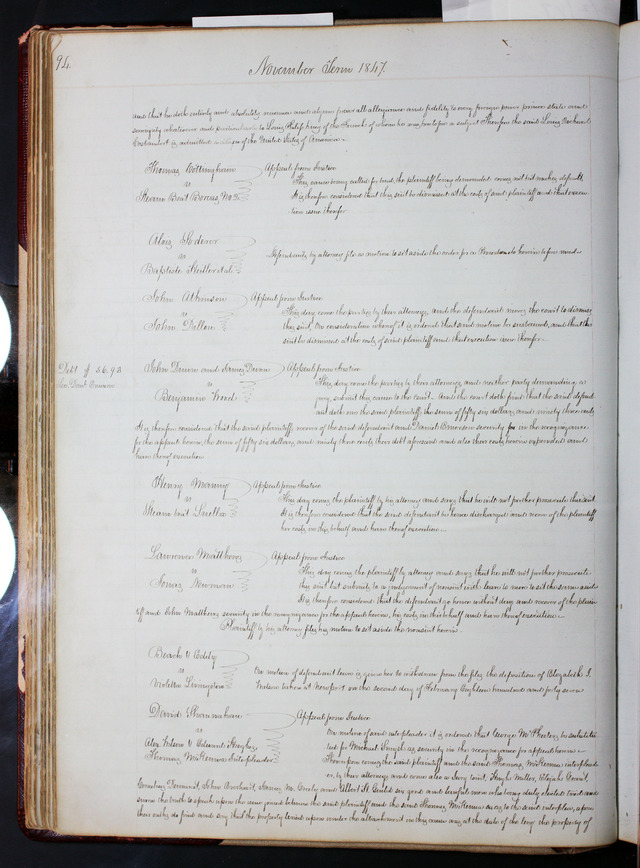 94
November Term 1847.
and that he doth entirely and absolutely renounce and abjure forever all allegiance and fidelity to every foreign power prince state and
sovereignty whatsoever and particularly to Louis Philip King of the French of whom he was heretofore a subject Therefore the said Louis
is admitted a citizen of the United States of America
Thomas Cottingham
vs
Steam Boat Boreas No 2.
Appeal from Justice
This cause being called for trial, the plaintiff being demanded comes not but makes default
It is therefore considered that this suit be dismissed at the costs of said plaintiff and that execu
tion issue therefor
Alois Lederer
vs
Baptiste et al
Defendants by attorney file a motion to set aside the order for a herein before made
John Atkinson
vs
John Dillon
Appeal from Justice
This day come the parties by their attorneys and the defendant moves the court to dismiss
this suit, On consideration whereof it is ordered that said motion be sustained, and that this
suit be dismissed at the costs of said plaintiff and that execution issue therefor
Debt $56.93
John Drum and James Drum
vs
Benjamin Wood
Appeal from Justice
This day come the parties by their attorneys and neither party demanding a
jury, submit this cause to the court. And the court doth find that the said defend
ant doth owe the said plaintiffs the sum of fifty six dollars and ninety three cents
It is therefore considered that the said plaintiffs recover of the said defendant and Daniel security in the recognizance
for the appeal herein, the sum of fifty six dollars and ninety three cents their debt aforesaid and also their costs herein expended and
have thereof execution
Henry Manning
vs
Steam boat Luella
Appeal from Justice
This day comes the plaintiff by his attorney and says that he will not further prosecute this suit
It is therefore considered that the said defendant be hence discharged and recover of the plaintiff
her costs in this behalf and have thereof execution
Lawrence Matthews
vs
Jonas Newman
Appeal from Justice
This day comes the plaintiff by attorney and says that he will not further prosecute
this suit but submits to a judgment of nonsuit with leave to move to set the same aside
It is therefore considered that the defendant go hence without day and recover of the plain
tiff and John Matthews security in the recognizance for the appeal herein, his costs in this behalf and have thereof execution
Plaintiff by his attorney files his motion to set aside the nonsuit herein
Beach & Eddy
vs
Livingston
On motion of defendant leave is given her to withdraw from the files the deposition of Elizabeth I.
taken at Newport on the second day of February Eighteen hundred and forty seven
David Shanahan
vs
Alex Wilson & Edward
Thomas McKernan Interpleader
Appeal from Justice
On motion of said interpleader it is ordered that George be substitu
ted for Michael as security in the recognizance for appeal herein
Thereupon come the said plaintiff and the said Thomas McKernan interplead
er, by their attorneys and come also a Jury to wit, Hugh Miller, Elijah
John James M. and Albert H. six good and lawful men who being duly elected tried and
sworn the truth to speak upon the issue joined between the said plaintiff and the said Thomas McKernan as to the said interplea, upon
their oaths do find and say that the property levied upon under the attachment in this cause was at the date of the levy the property of